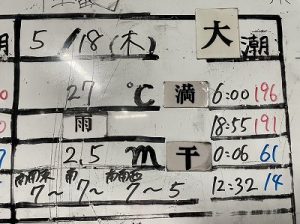 5/18(木) 大潮
27℃ 満 6:00 196
雨 18:55 191
2.5m 干 0:06 61
南南東 南 南南西
7~ 7~ 7~5 12:32 14